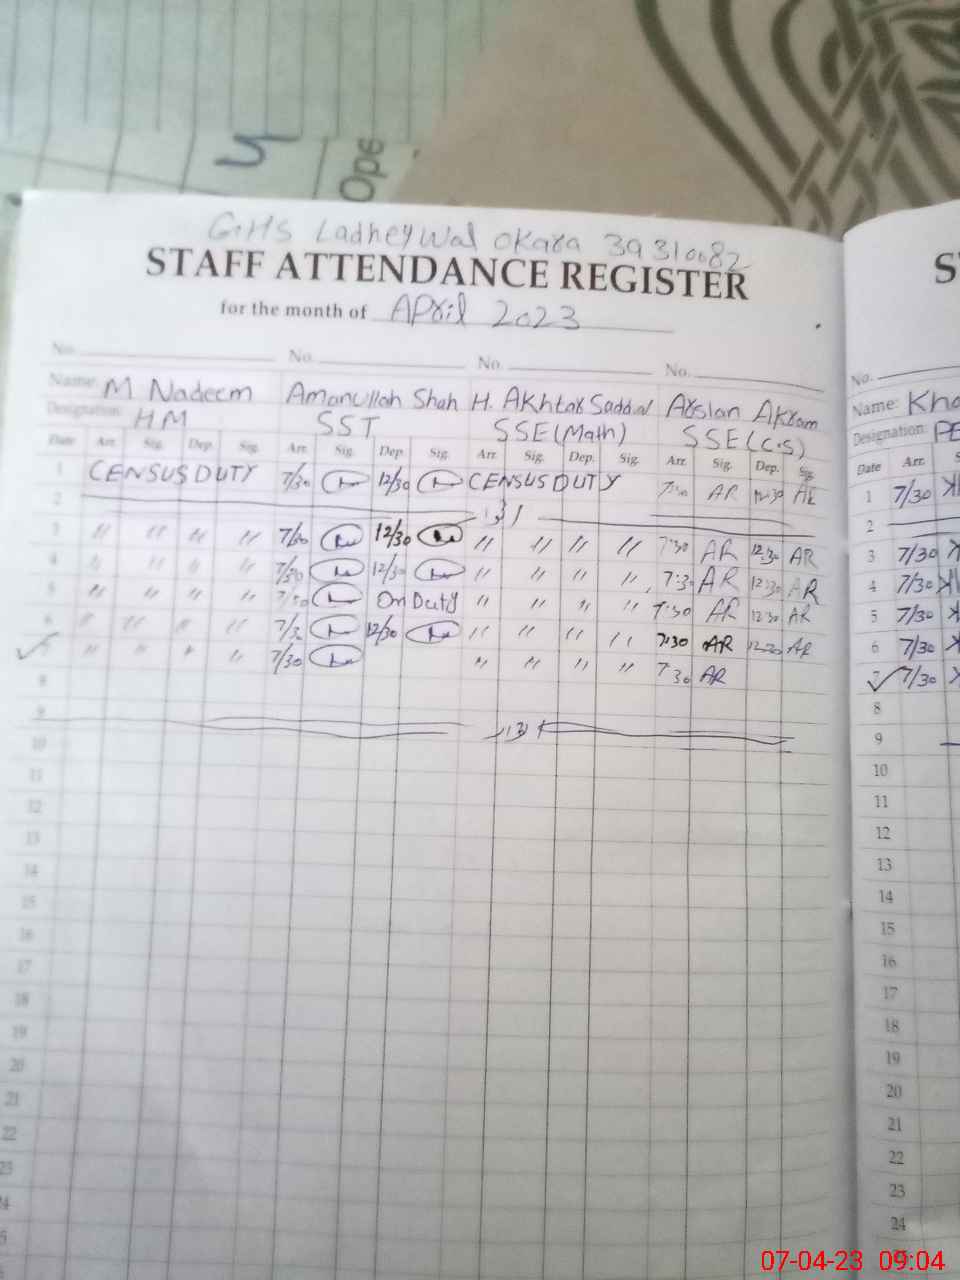 Ope
GHS Ladheywal Okara 39310082
STAFF ATTENDANCE REGISTER
for the month of April 2023
No. No. No. No.
Name: M Nadeem Amanullah Shah H. Akhtar Arslan Akram
Designation: HM SST SSE(Math) SSE(C.S)
Date Arr. Sig. Dep. Sig. Arr. Sig. Dep. Sig. Arr. Sig. Dep. Sig. Arr. Sig. Dep. Sig.
1 CENSUS DUTY 7/30 12/30 CENSUS DUTY 7:30 AR 12:30 AR
2
3 " " " " 7/30 12/30 " " " " 7:30 AR 12:30 AR
4 " " " 7/30 12/30 " " " " 7:30 AR 12:30 AR
5 " " " " 7/30 On Duty " " " " 7:30 AR 12:30 AR
6 " " " " 7/30 12/30 " " " " 7:30 AR 12:30 AR
7 " " " " 7/30 " " " " 7:30 AR
8
9
10
11
12
13
14
15
16
17
18
19
20
21
22
23
No.
Name: Kha
Designation: PE
Date Arr.
1 7/30
2
3 7/30
4 7/30
5 7/30
6 7/30
7 7/30
8
9
10
11
12
13
14
15
16
17
18
19
20
21
22
23
24
07-04-23 09:04